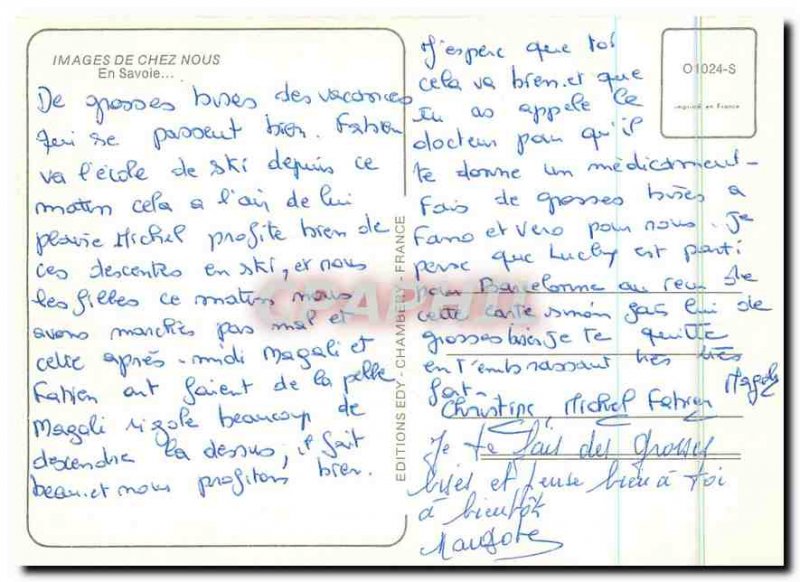 IMAGES DE CHEZ NOUS
En Savoie...
De grosses bises des vacances
qui se passent bien. Fabien
va l'école de ski depuis ce
matin cela a l'air de lui
plaire Michel profite bien de
ces descentes en ski, et nous
les filles ce matin nous
avons marchés pas mal et
cette après-midi Magali et
Fabien ont faient de la pelle
Magali rigole beaucoup de
descendre la dessus, il fait
beau et nous profitons bien.
EDITIONS EDY - CHAMBÉRY - FRANCE
J'espère que toi
cela va bien et que
tu as appelé le
docteur pour qu'il
te donne un médicament-
Fais de grosses bises a
Fano et Vero pour nous. je
pense que Lucky est parti
pour Barcelonne au reçu de
cette carte sinon fais lui de
grosses bises je te quitte
en t'embrassant très très
fort-
Christine, Michel Fabien Magali
Je te fais des grosses
bises et pense bien à toi
à bientôt
O1024-S
Imprimé en France
CPAPHIL